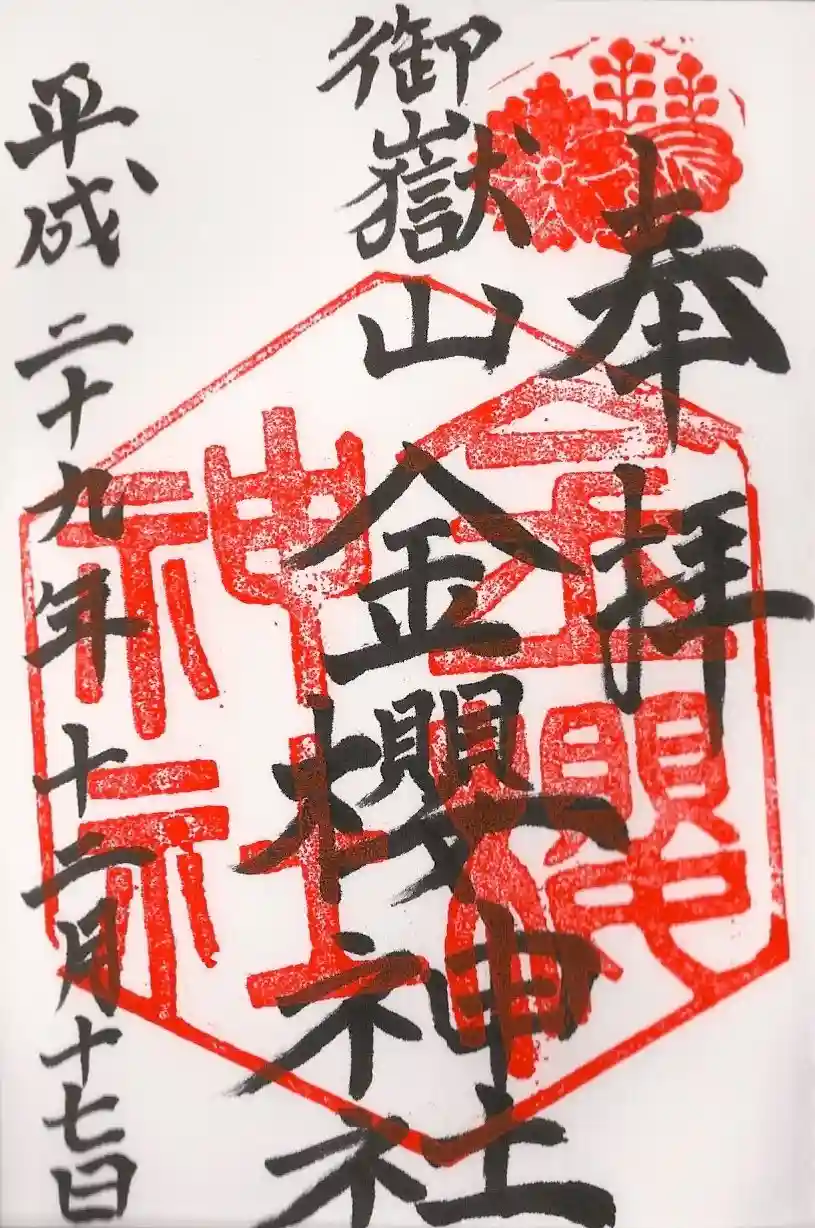 奉拝
御嶽山
金櫻神社
平成二十九年十二月十七日
金櫻神社